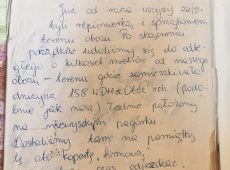 Już od rana wszyscy zajęci
byli repionierką i sprzątaniem
terenu obozu. Po skończonym
porządku udaliśmy się do odle-
głego o kilkaset metrów od naszego
obozu - terenu gdzie zamieszkiwała
drużyna 158 ŁDH. Obóz ich (podo-
bnie jak nasz) ładnie położony
na pagórku.
Dostaliśmy tam na pamiątkę
kopertę firmową
czas odjeżdżać